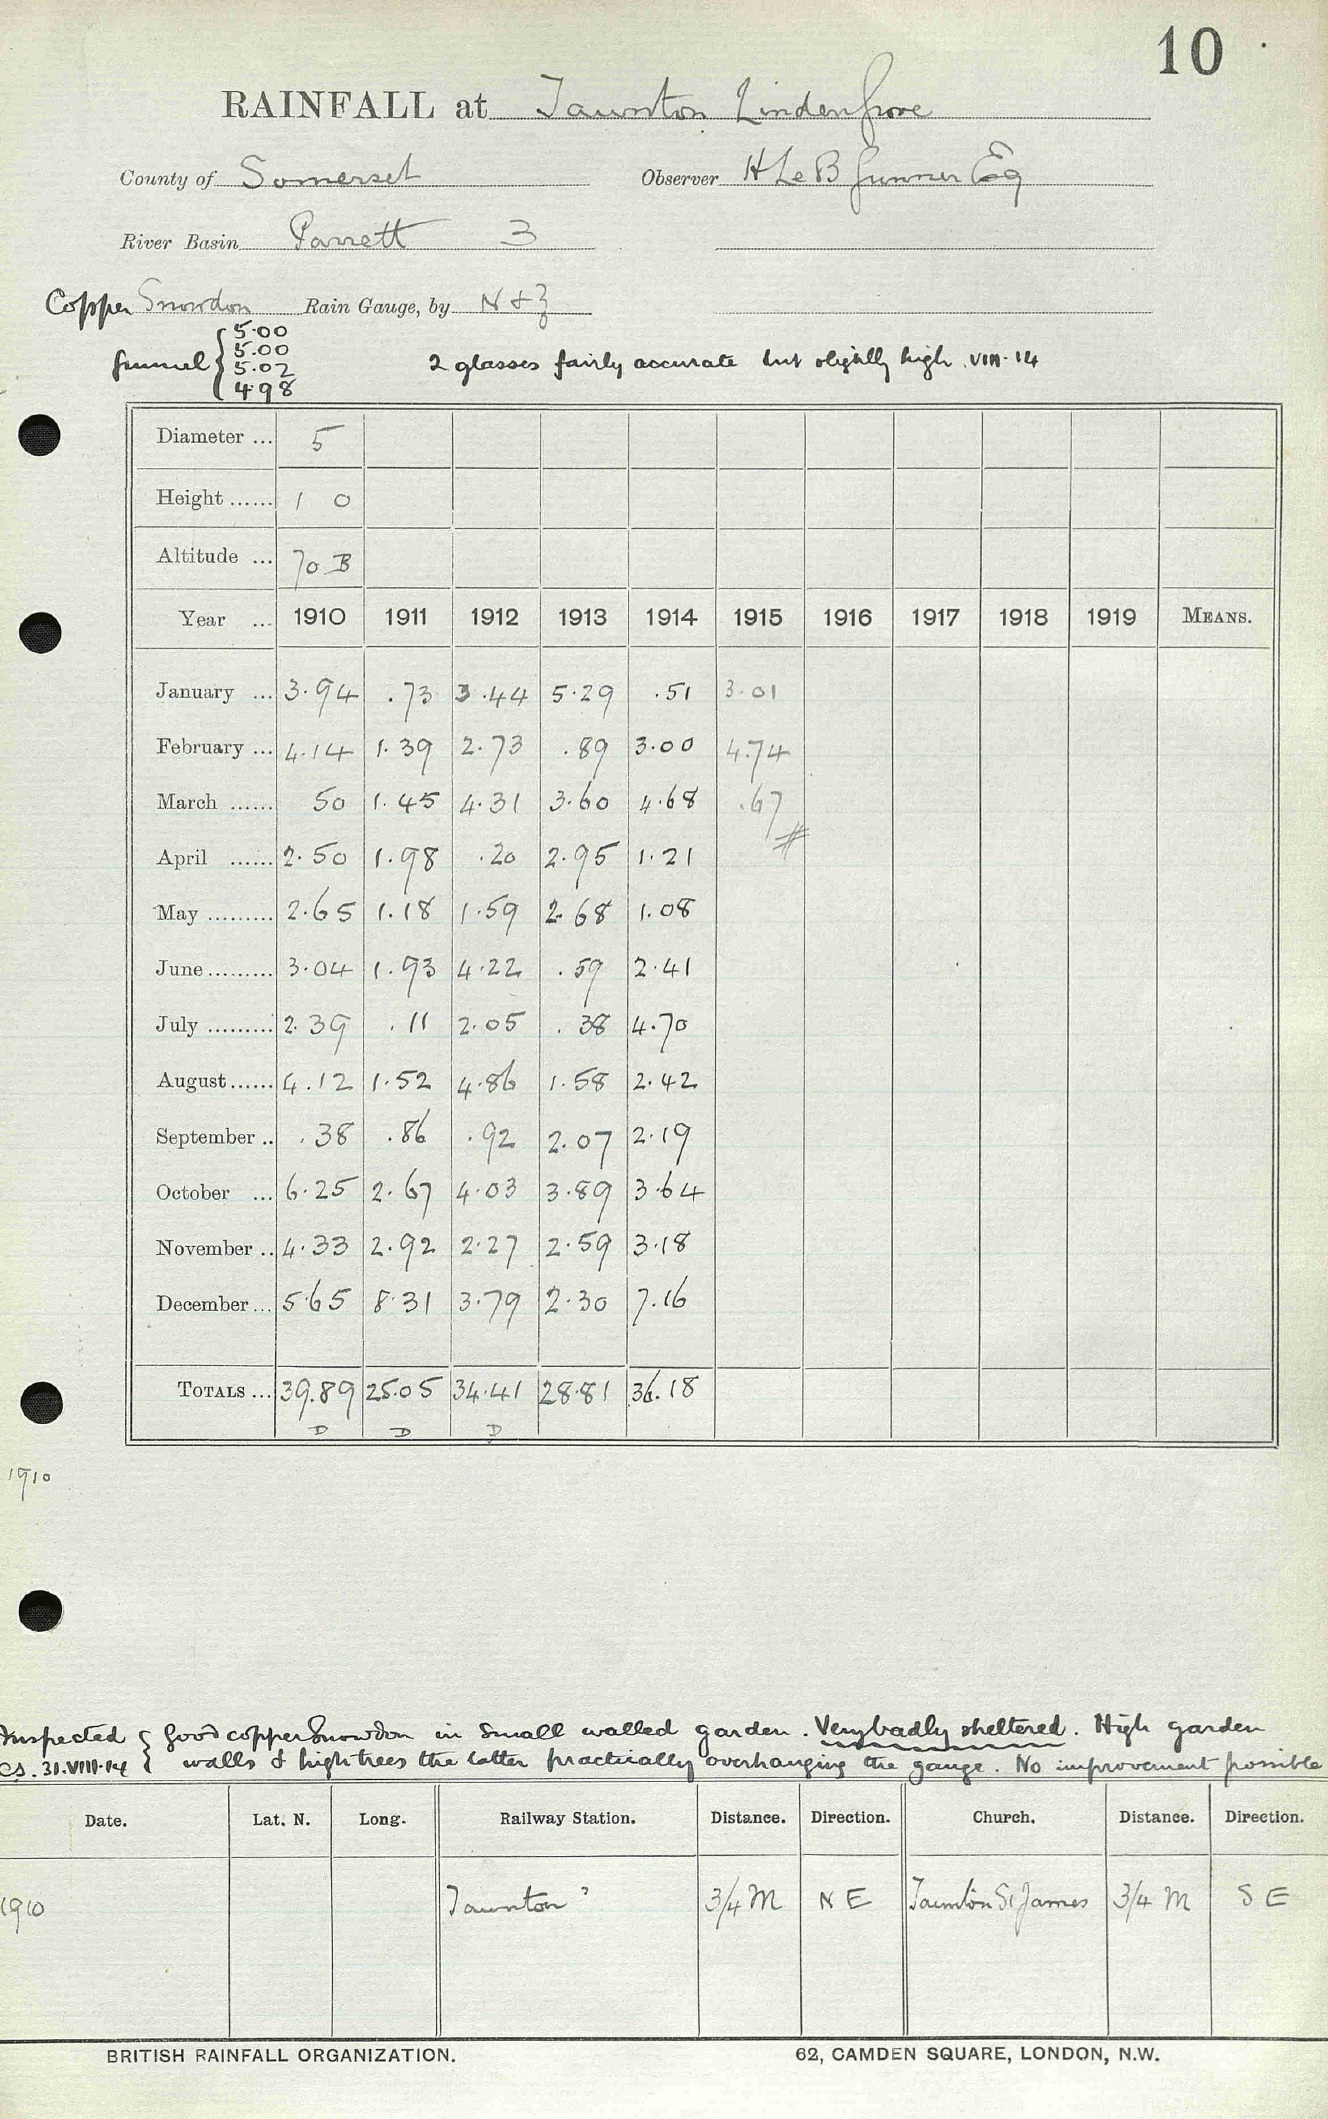 10
RAINFALL at Taunton Linden Grove
County of Somerset Observer H Le B Gunner Esq
River Basin Parrett 3
Copper Snowdon Rain Gauge, by N & Z
funnel { 5.00
5.00
5.02
4.98
2 glasses fairly accurate but slightly high. VIII.14
Diameter ... 5
Height ...... 1 0
Altitude ... 70 B
Year ... 1910 1911 1912 1913 1914 1915 1916 1917 1918 1919 MEANS.
January ... 3.94 .73 3.44 5.29 .51 3.01
February ... 4.14 1.39 2.73 .89 3.00 4.74
March ...... 50 1.45 4.31 3.60 4.68 .67
April ...... 2.50 1.98 .20 2.95 1.21
May ......... 2.65 1.18 1.59 2.68 1.08
June ......... 3.04 1.93 4.22 .59 2.41
July ......... 2.39 .11 2.05 .38 4.70
August ...... 4.12 1.52 4.86 1.58 2.42
September .. .38 .86 .92 2.07 2.19
October ... 6.25 2.67 4.03 3.89 3.64
November .. 4.33 2.92 2.27 2.59 3.18
December ... 5.65 8.31 3.79 2.30 7.16
TOTALS ... 39.89 25.05 34.41 28.81 36.18
D D D
1910
Inspected { Good copper Snowdon in small walled garden. Very badly sheltered. High garden
CS. 31.VIII.14 { walls & high trees the latter practically overhanging the gauge. No improvement possible
Date. Lat. N. Long. Railway Station. Distance. Direction. Church. Distance. Direction.
1910 Taunton 3/4 M N E Taunton St James 3/4 M S E
BRITISH RAINFALL ORGANIZATION. 62, CAMDEN SQUARE, LONDON, N.W.